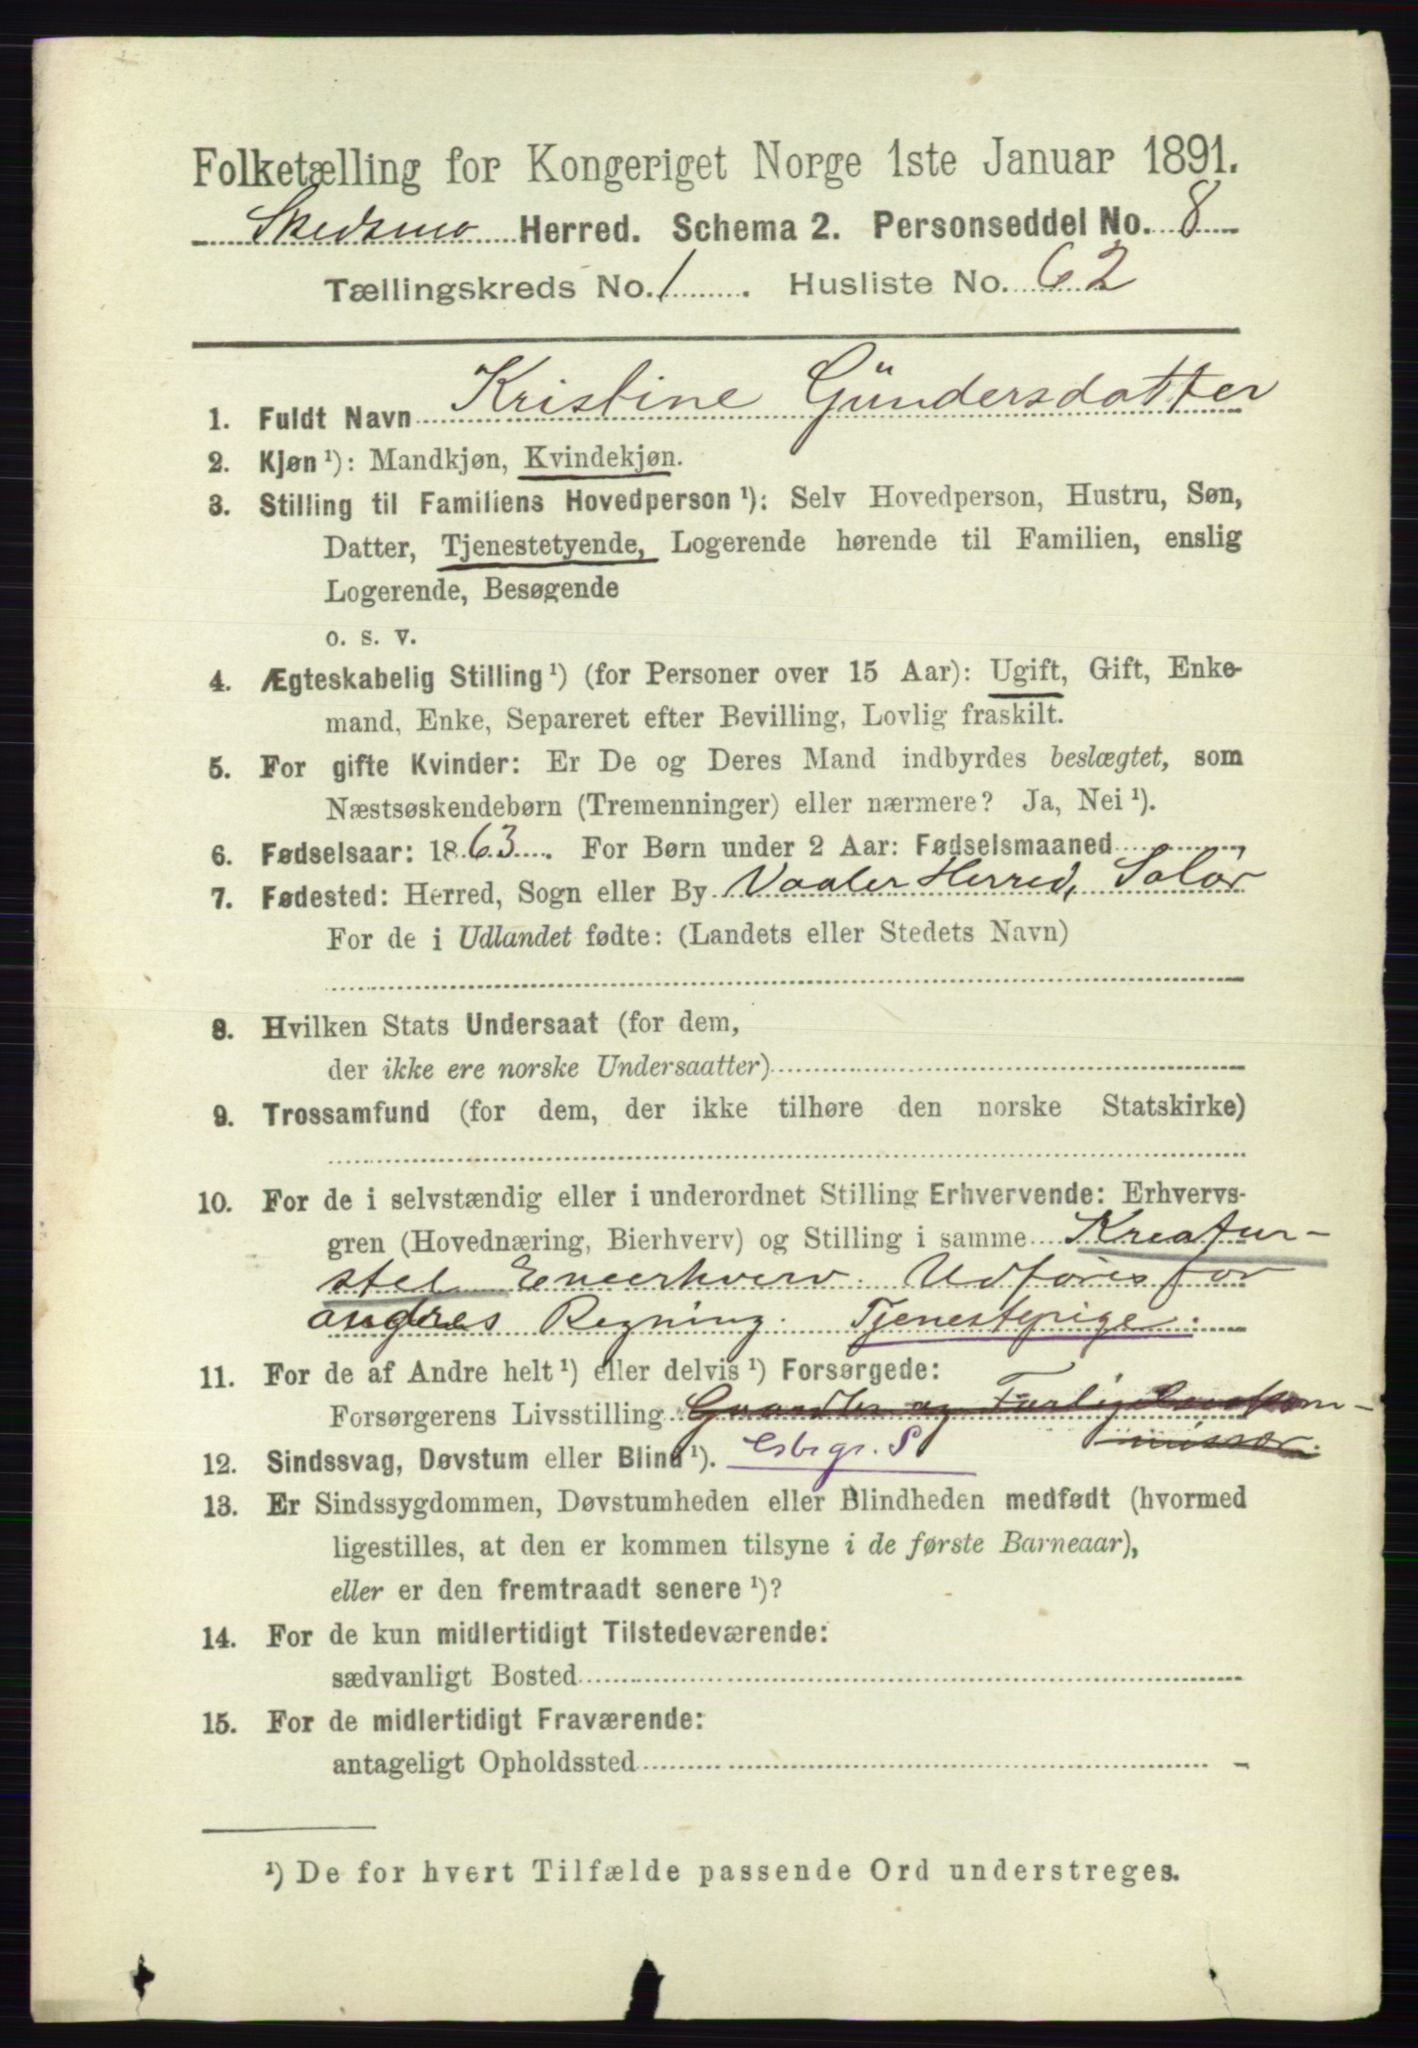 Folketælling for Kongeriget Norge 1ste Januar 1891.
Skedsmo Herred. Schema 2. Personseddel No. 8
Tællingskreds No. 1. Husliste No. 62
1. Fuldt Navn Kristine Gündersdatter
2. Kjøn ¹): Mandkjøn, Kvindekjøn.
3. Stilling til Familiens Hovedperson ¹): Selv Hovedperson, Hustru, Søn,
Datter, Tjenestetyende, Logerende hørende til Familien, enslig
Logerende, Besøgende
o. s. v.
4. Ægteskabelig Stilling ¹) (for Personer over 15 Aar): Ugift, Gift, Enke-
mand, Enke, Separeret efter Bevilling, Lovlig fraskilt.
5. For gifte Kvinder: Er De og Deres Mand indbyrdes beslægtet, som
Næstsøskendebørn (Tremenninger) eller nærmere? Ja, Nei ¹).
6. Fødselsaar: 1863. For Børn under 2 Aar: Fødselsmaaned
7. Fødested: Herred, Sogn eller By Vaaler Herred, Solør
For de i Udlandet fødte: (Landets eller Stedets Navn)
8. Hvilken Stats Undersaat (for dem,
der ikke ere norske Undersaatter)
9. Trossamfund (for dem, der ikke tilhøre den norske Statskirke)
10. For de i selvstændig eller i underordnet Stilling Erhvervende: Erhvervs-
gren (Hovednæring, Bierhverv) og Stilling i samme Kreatur-
stel Eneerhverv. Udføres for
andres Regning. Tjenestepige.
11. For de af Andre helt ¹) eller delvis ¹) Forsørgede:
Forsørgerens Livsstilling og
12. Sindssvag, Døvstum eller Blind ¹).
13. Er Sindssygdommen, Døvstumheden eller Blindheden medfødt (hvormed
ligestilles, at den er kommen tilsyne i de første Barneaar),
eller er den fremtraadt senere ¹)?
14. For de kun midlertidigt Tilstedeværende:
sædvanligt Bosted
15. For de midlertidigt Fraværende:
antageligt Opholdssted
¹) De for hvert Tilfælde passende Ord understreges.